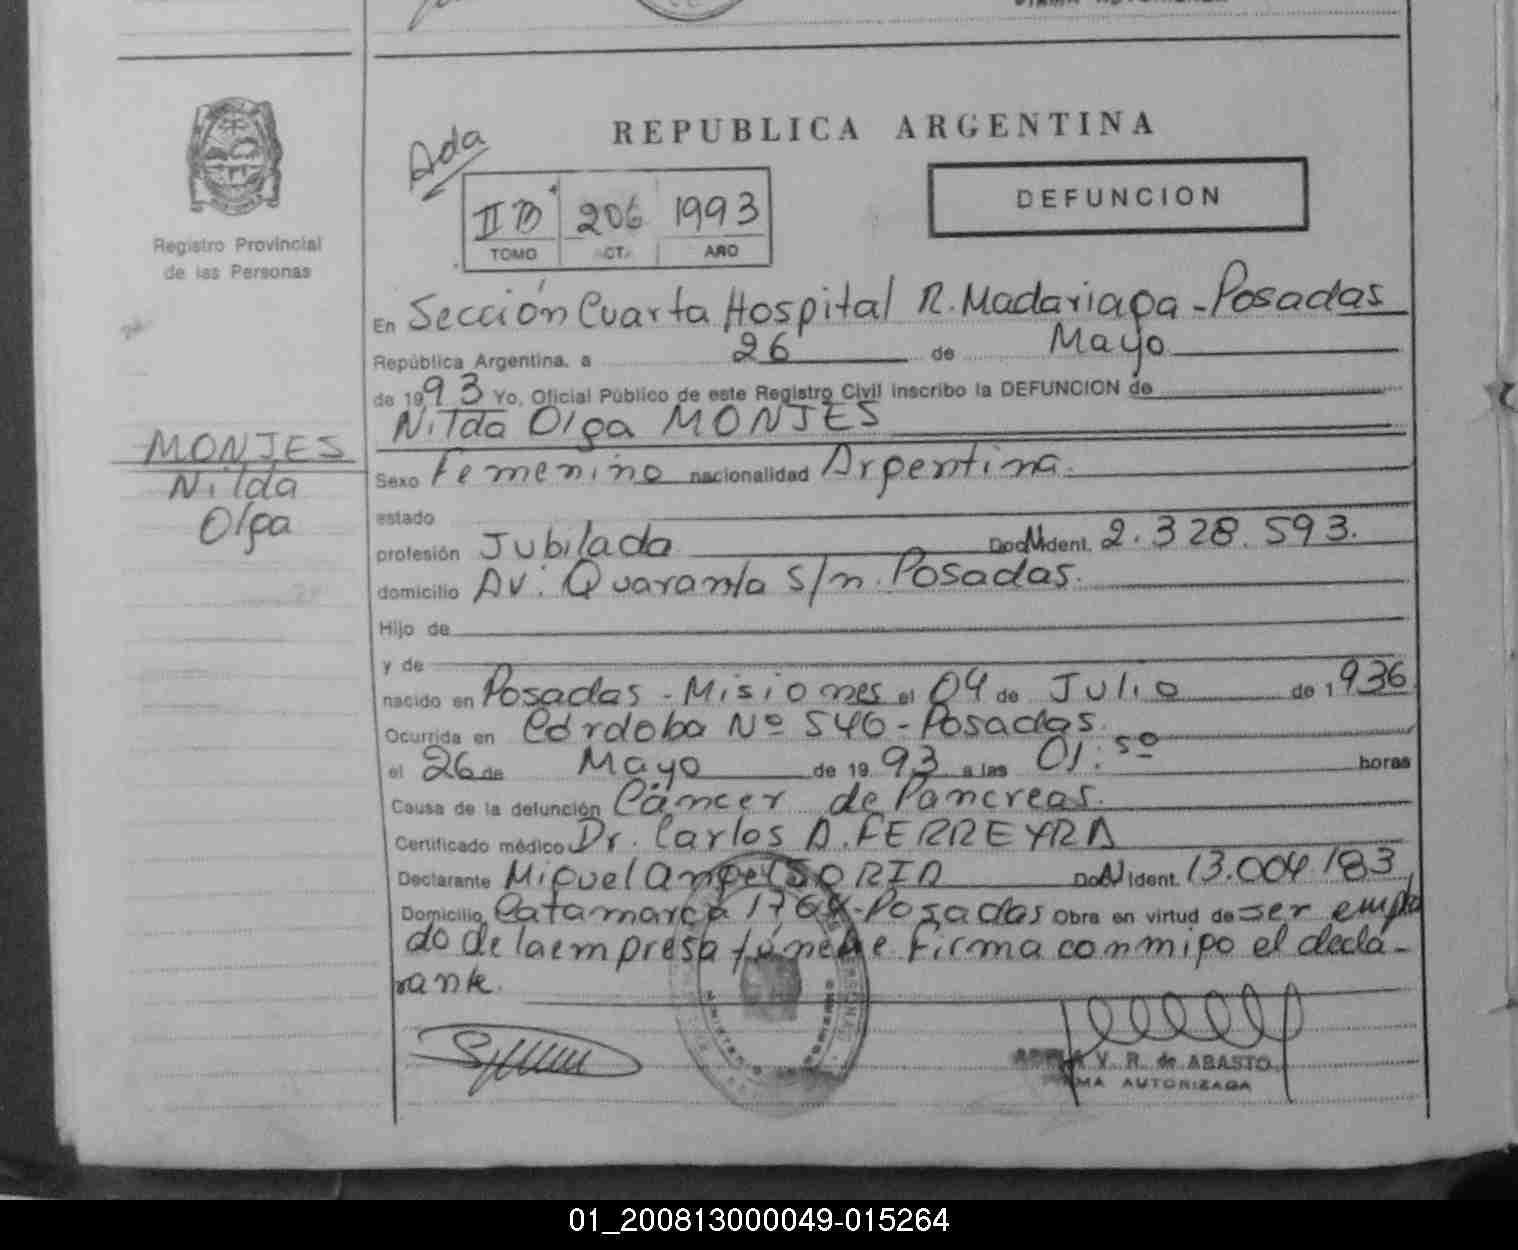 REPUBLICA ARGENTINA
Ada
II B 206 1993
TOMO ACT. AÑO
DEFUNCION
Registro Provincial
de las Personas
En Sección Cuarta Hospital R. Madariaga - Posadas
República Argentina, a 26 de Mayo
de 1993 Yo, Oficial Público de este Registro Civil inscribo la DEFUNCION de
Nilda Olga MONJES
MONJES
Nilda
Olga
Sexo Femenino nacionalidad Argentina.
estado
profesión Jubilada Doc Ident. 2.328.593.
domicilio Av. Quaranta s/n. Posadas.
Hijo de
y de
nacido en Posadas - Misiones el 04 de Julio de 1936
Ocurrida en Córdoba Nº 546 - Posadas.
el 26 de Mayo de 1993 a las 01:50 horas
Causa de la defunción Cáncer de Pancreas.
Certificado médico Dr. Carlos A. FERREYRA
Declarante Miguel Angel SORIA Doc Ident. 13.004.183
Domicilio Catamarca - Posadas Obra en virtud de ser emplea
do de la empresa fúnebre. Firma conmigo el decla-
rante.
V. R. de ABASTO
FIRMA AUTORIZADA
01_200813000049-015264